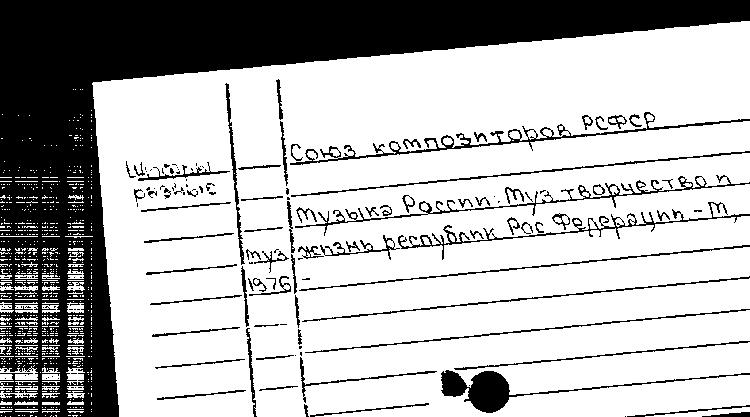 Союз композиторов РСФСР
Шифры
разные
Музыка России. Муз творчество и
муз жизнь республик Рос Федерации - М,
1976 -